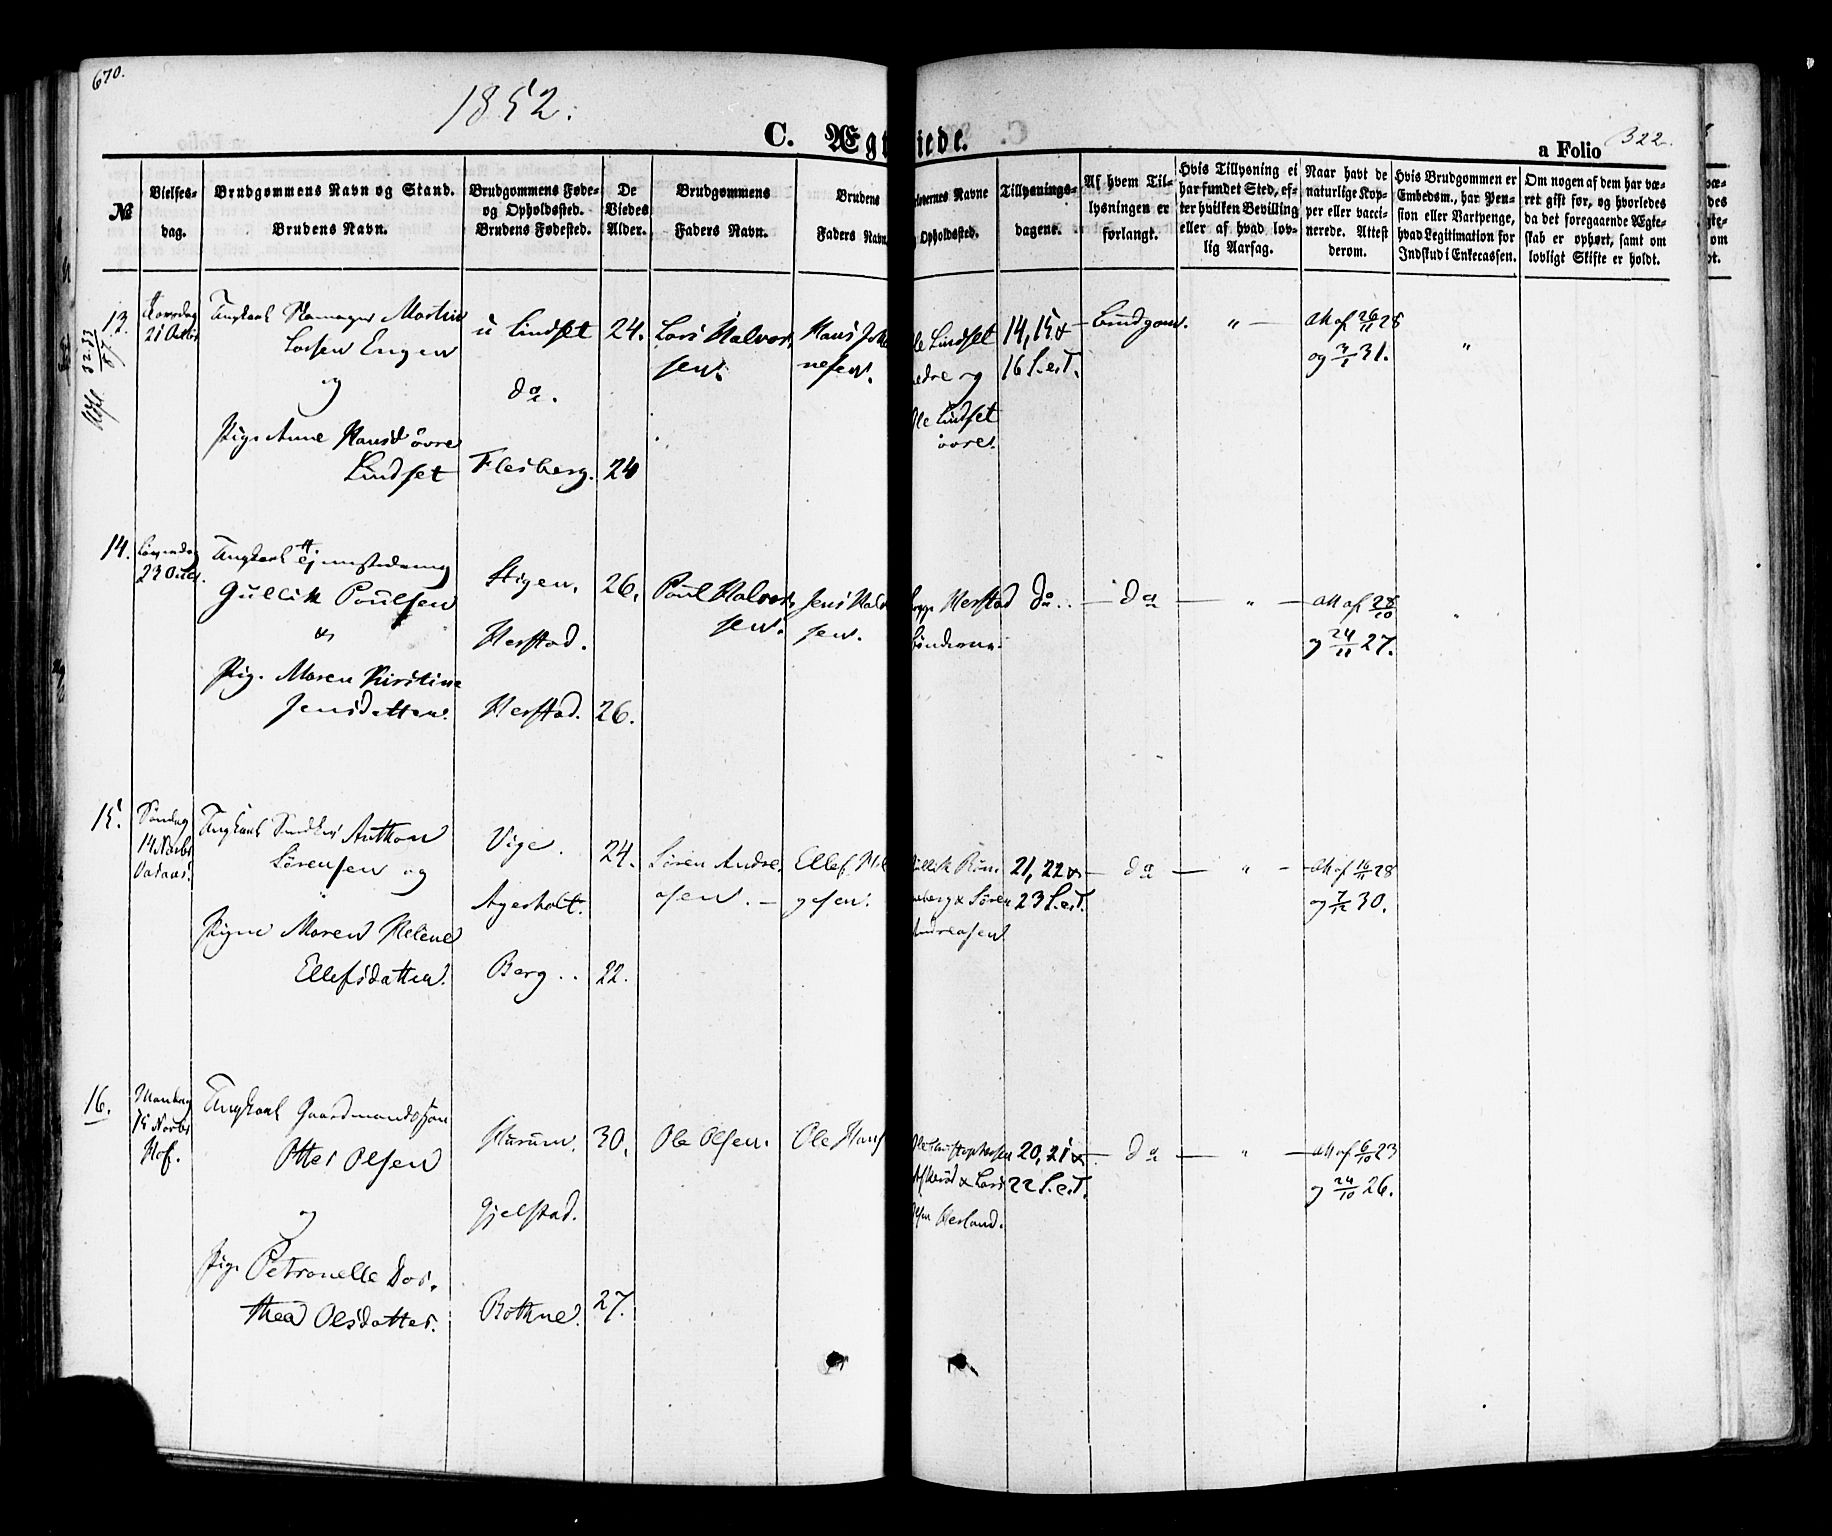 670.
1852.
C. Ægt
iede.
a Folio
322.
№
Vielses-
dag.
Brudgommens Navn og Stand.
Brudens Navn.
Brudgommens Føde-
og Opholdssted.
Brudens Fødested.
De
Viedes
Alder.
Brudgommens
Faders Navn.
Brudens
Faders Navn
loternes Navne
Opholdssted.
Tillysnings-
dagene.
Af hvem Til-
lysningen er
forlangt.
Hvis Tillysning ei
har fundet Sted, ef-
ter hvilken Bevilling
eller af hvad lov-
lig Aarsag.
Naar havt de
naturlige Kop-
per eller vacci-
nerede. Attest
derom.
Hvis Brudgommen er
Embedsm., har Pen-
sion eller Vartpenge,
hvad Legitimation for
Indskud i Enkecassen.
Om nogen af dem har væ-
ret gift før, og hvorledes
da det foregaaende Ægte-
skab er ophørt, samt om
lovligt Skifte er holdt.
13.
21 Octbr
Ungkarl Martin
Larsen Engen
og
Pige Anne Hansd øvre
Lindset
u Lindset
do.
Flesberg.
24.
24
Lars Halvor,
sen.
Hans Joha
nesen.
le Lindset
nedre og
Ole Lindset
øvre.
14, 15 &
16 S.e.T.
Brudgom.
"
Att af 26/11 28
og 3/1 31.
"
14.
23 Octbr.
Ungkarl
Gullik Poulsen
&
Pig. Maren Kirstine
Jensdatter.
Stigen.
Herstad.
Herstad.
26.
26.
Poul Halvor,
sen.
Jens Halv
sen.
Herstad
do.
do
"
Att af 28/10
og 24/11 27.
"
15.
Søndag
14 Novbr
Ungkarl Anthon
Sørensen og
Pigen Maren Helene
Ellefsdatter.
Vige.
Agerholt.
Berg
24.
22.
Søren Andre,
asen.
Ellef Hel
gesen.
Gullik Røm
neberg & Søren
Andreasen
21, 22 &
23 S.e.T.
do
"
Att af 16/11 28
og 7/12 30.
16.
Mandag
15 Novbr
Hof.
Ungkarl Gaardmandssøn
Otter Olsen
og
Pige Petronelle Dor,
thea Olsdatter.
Sturum.
Gjelstad.
Bothne.
30.
27.
Ole Olsen.
Ole Hans
Ole Christophersen
& Lars
Olsen Oerland.
20, 21 &
22 S.e.T.
do
"
Att af 6/10 23
og 24/10 26.